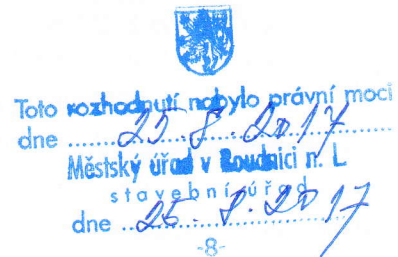 Toto rozhodnutí nabylo právní moci
dne 25.8.2017
Městský úřad v Roudnici n. L
stavební úřad
dne 25. 8. 2017
-8-